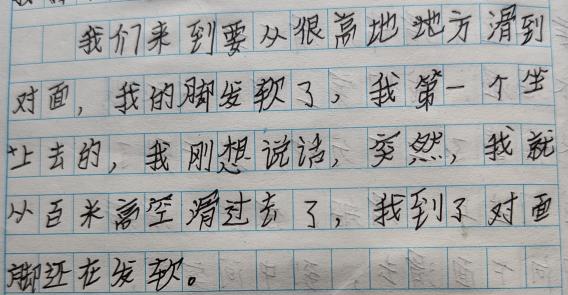 我们来到要从很高地地方滑到
对面，我的脚发软了，我第一个坐
上去的，我刚想说话，突然，我就
从百米高空滑过去了，我到了对面
脚还在发软。